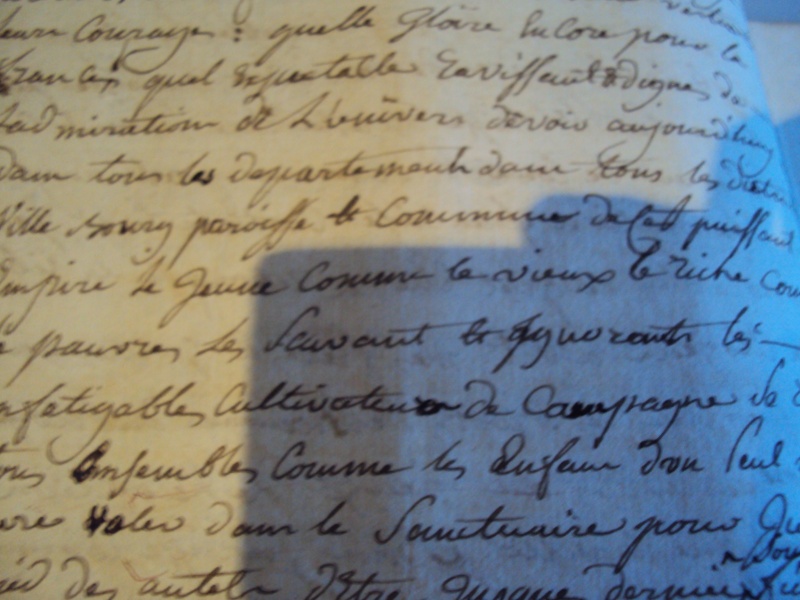 leurs Courages : quelle Gloire Encore pour la
francais quel Espectable Ravissant & digne de
Ladmiration de L'univers devoir aujourdhuy
dans tous les departements dans tous les
Ville bourg paroisse & Commune de Cet puissant
Empire Le Jeune Comme le vieux le riche
pauvres Les Savant & Ignorants les
Infatigables Cultivateurs de Campagne Se
tous Ensembles Comme les Enfans d'un Seul
voler dans le Sanctuaire pour
pied des autels d'Etre Jusque